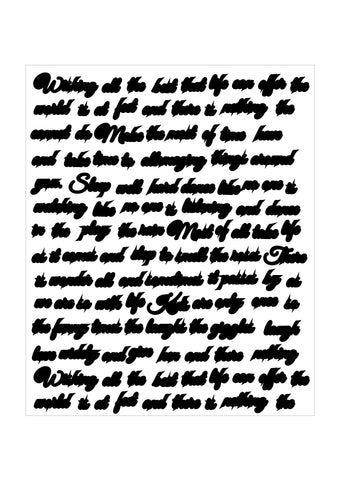 Wishing all the best that life can offer the
world is at feet and there is nothing the
cannot do Make the most of time have
and take time to all amazing things around
you Sleep well hard dance like no one is
watching like no one is listening and dance
in the play the rain Most of all take life
as it comes and stop to smell the roses There
is wonder all and sometimes it passes by as
we are so with life Kids are only once so
the funny times the laughs the giggles laugh
love wildly and give and there nothing
Wishing all the best that life can offer the
world is at feet and there is nothing the